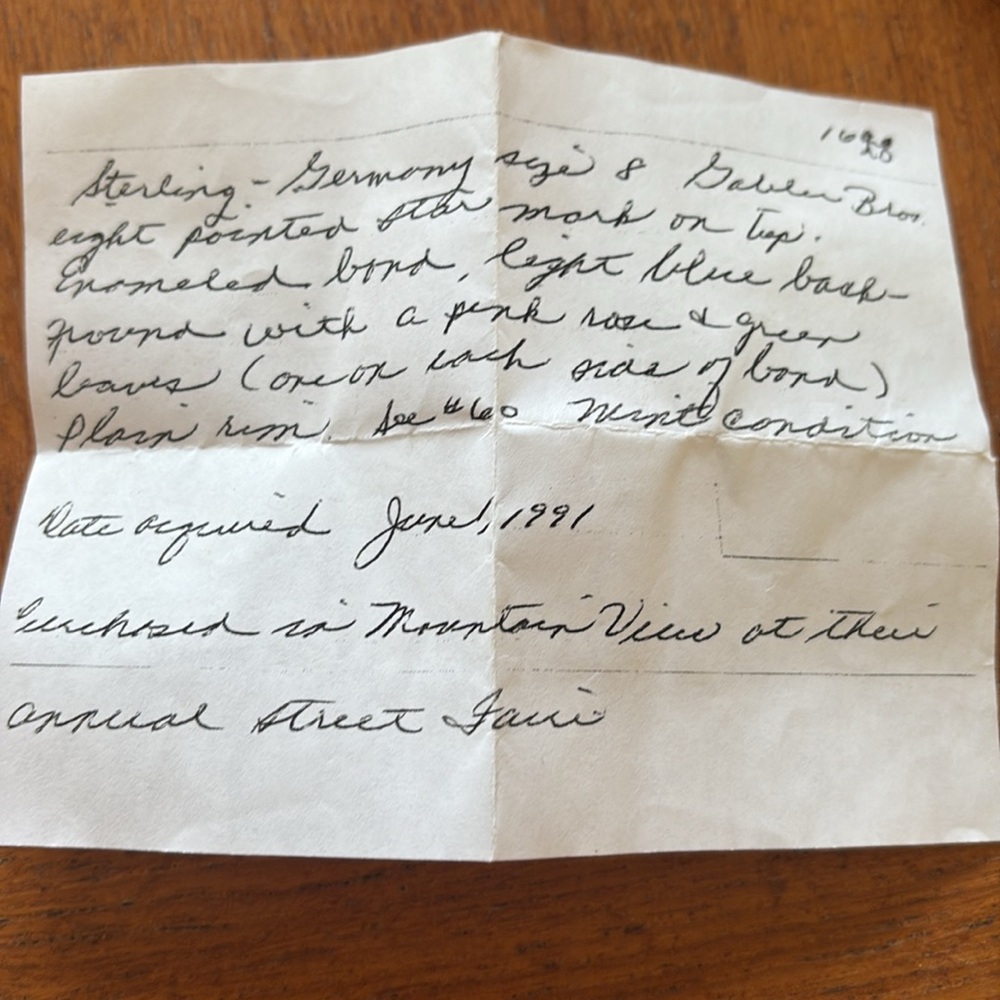 Sterling - Germany size 8 Gabler Bros.
eight pointed star mark on top.
Enameled band, light blue back-
ground with a pink rose & green
leaves (one on each side of band)
Plain rim. See #60 Mint Condition
Date acquired June 1, 1991
Purchased in Mountain View at their
annual street Faire